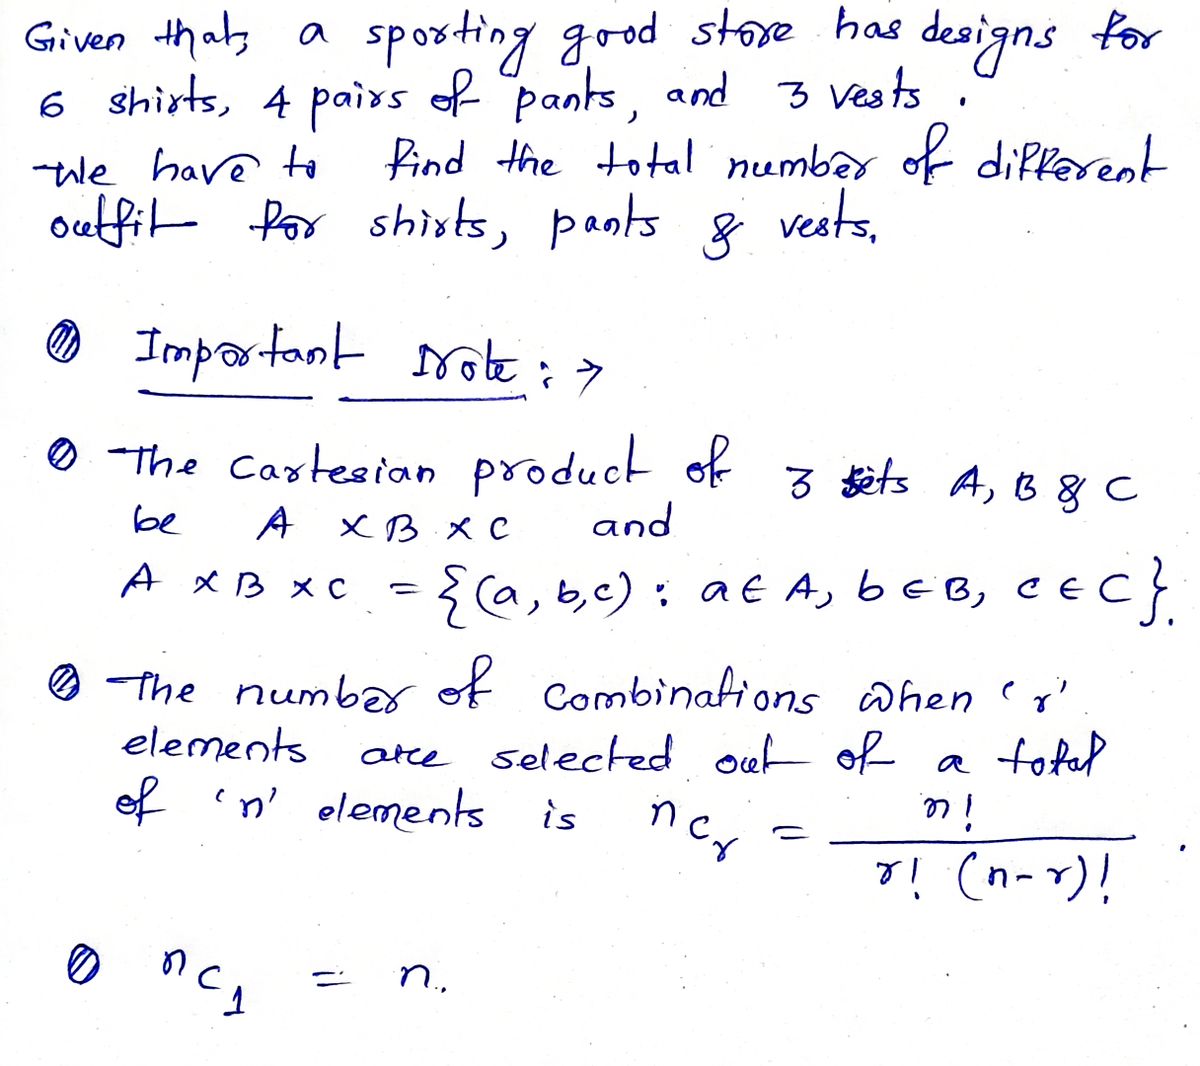 Given that, a sporting good store has designs for
6 shirts, 4 pairs of pants, and 3 vests.
We have to find the total number of different
outfit for shirts, pants & vests.
Important Note :→
The Cartesian product of 3 sets A, B & C
be A × B × C and
A × B × C = {(a, b, c) : a ∈ A, b ∈ B, c ∈ C}.
The number of combinations when 'r'
elements are selected out of a total
of 'n' elements is nCr = n! / r! (n-r)! .
nC1 = n.